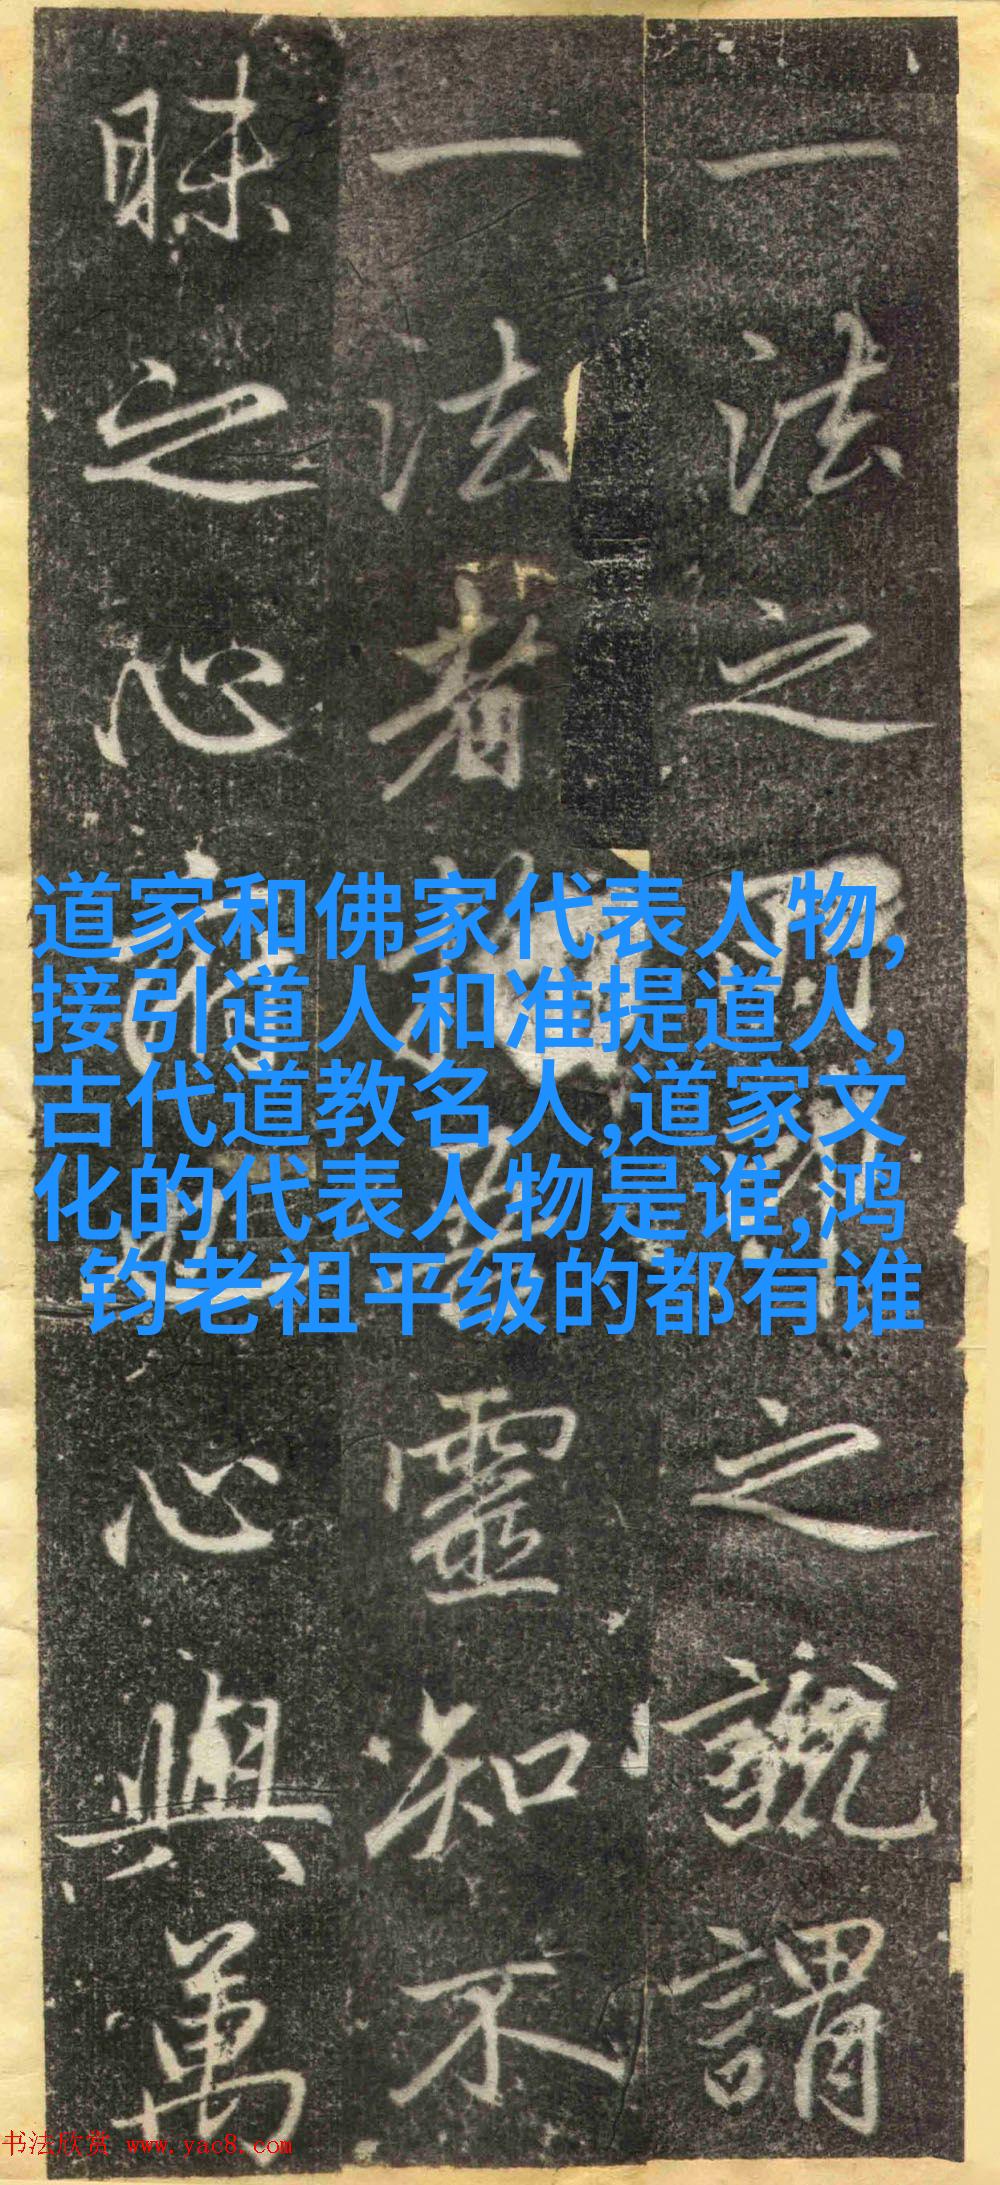 一法之之謂
一法者靈知不
昧之心心與萬
道家和佛家代表人物,
接引道人和准提道人,
古代道教名人,道家文
化的代表人物是谁,鸿
钧老祖平级的都有谁
书法欣赏 www.yac8.com